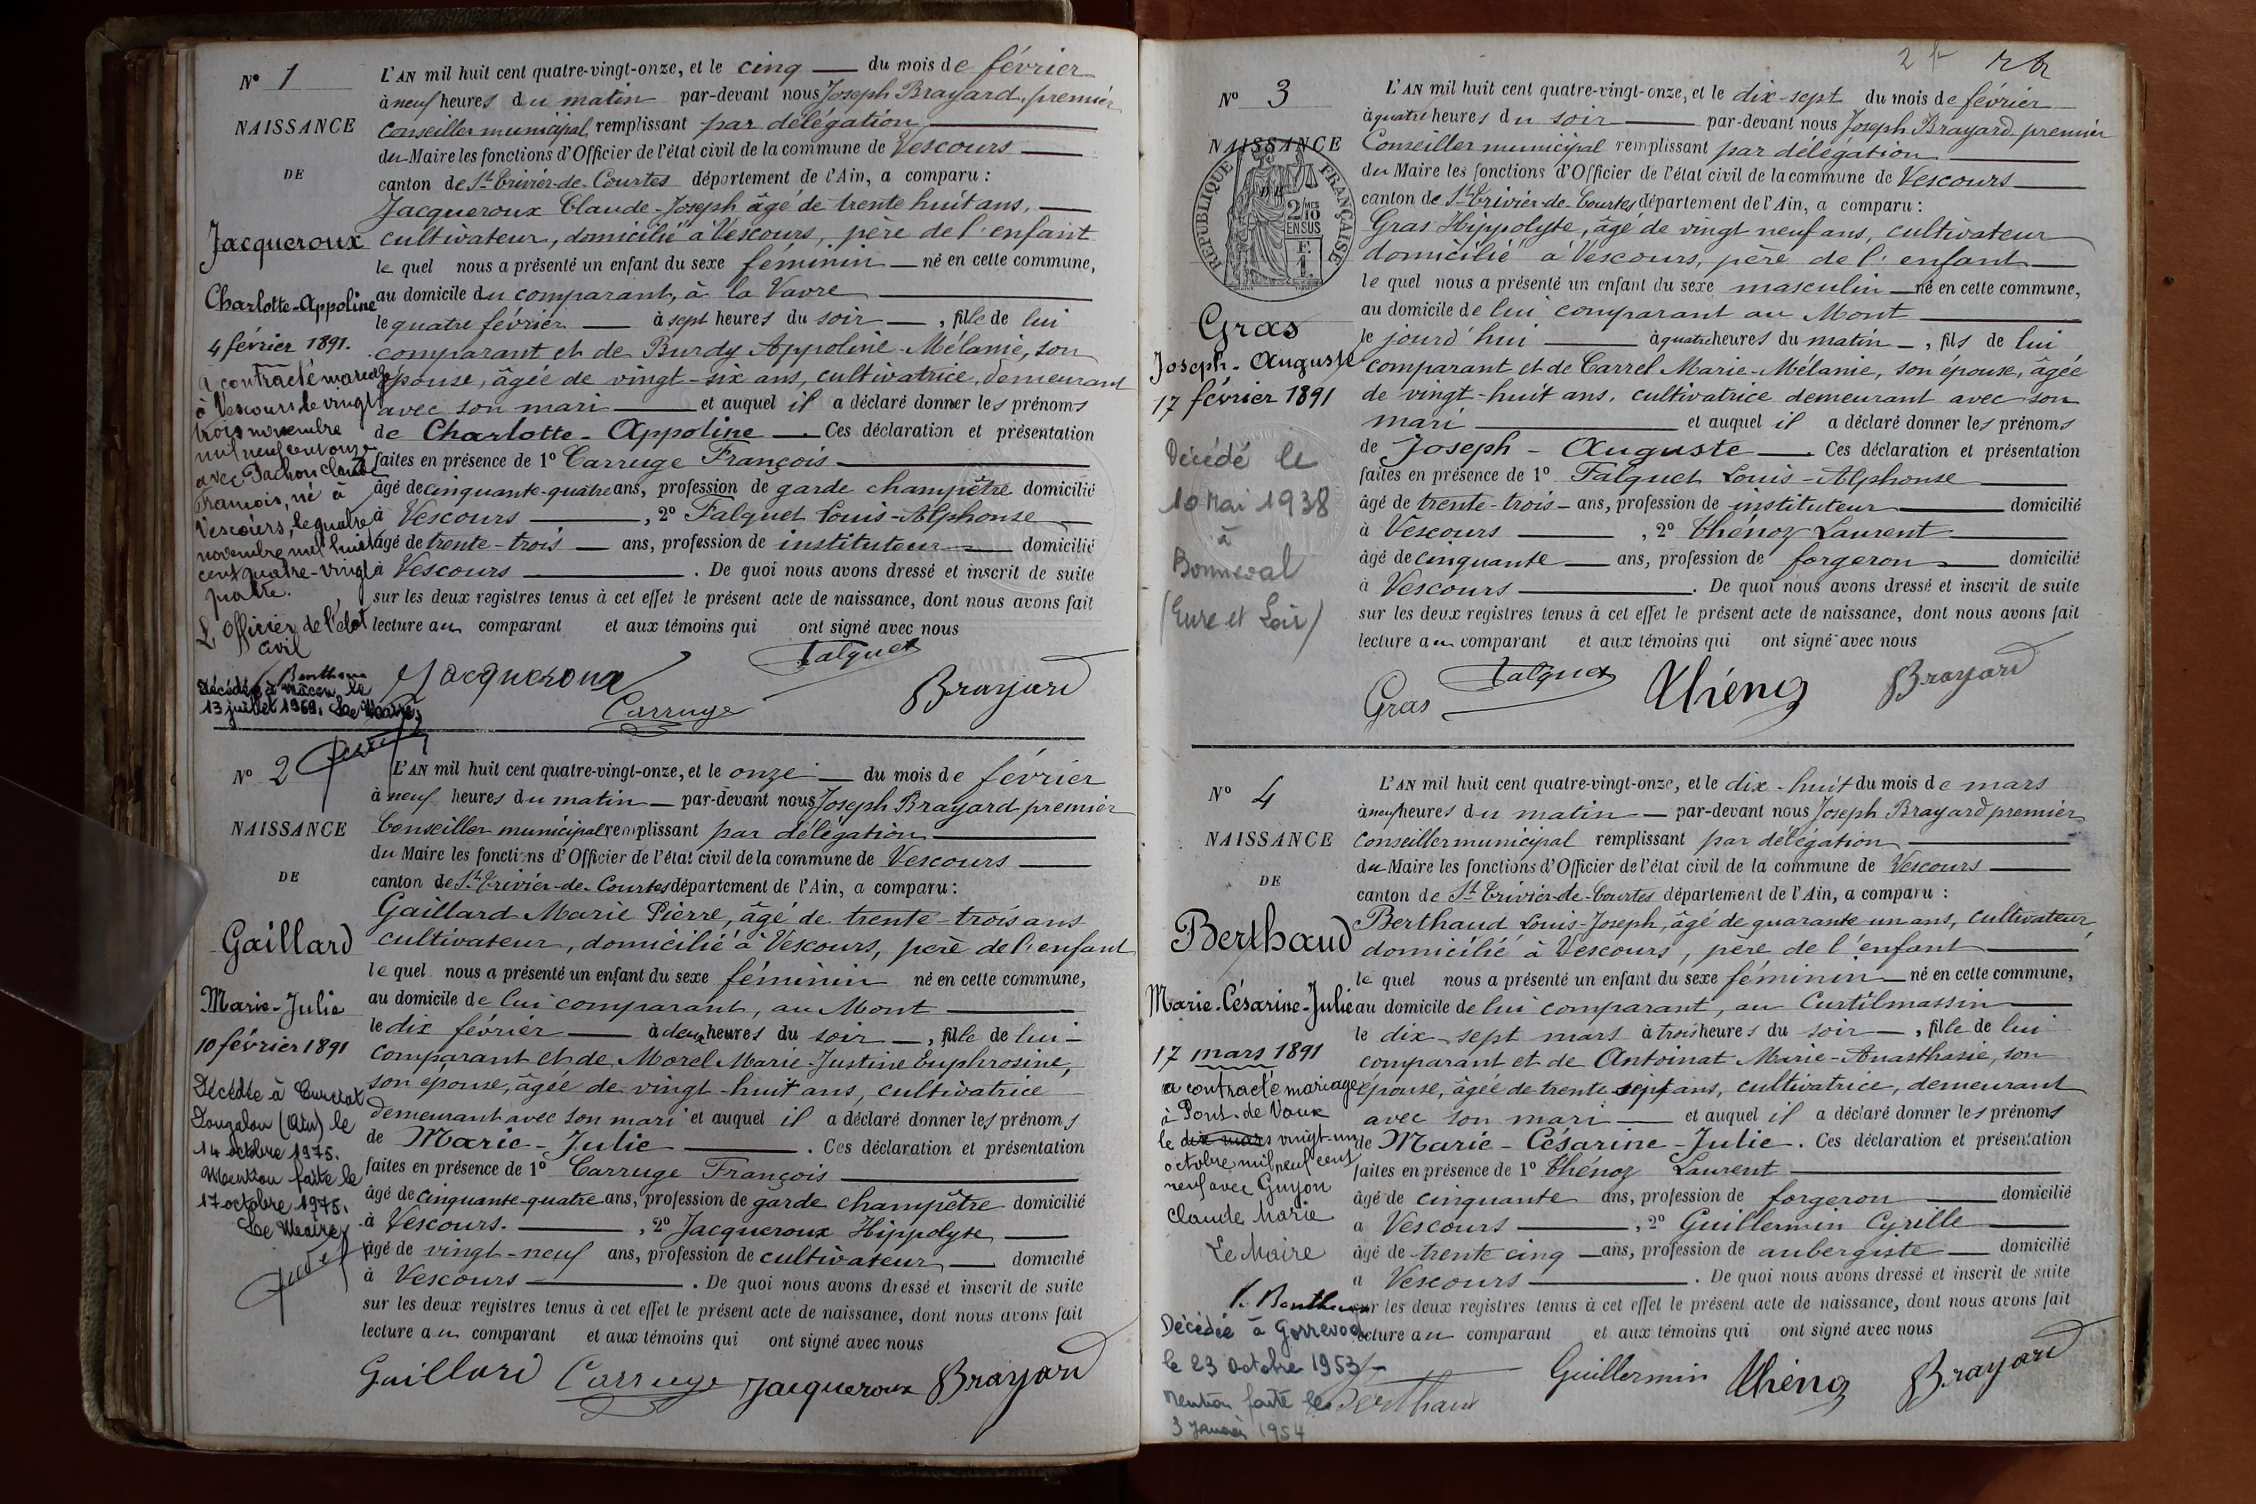 N° 1
NAISSANCE
DE
Jacqueroux
Charlotte-Appoline
4 février 1891.
a contracté mariage
à Vescours le vingt
trois novembre
mil neuf cent onze
avec Pachon Claude
François, né à
Vescours, le quatre
novembre mil huit
cent quatre-vingt
quatre.
L'officier de l'état
civil
Décédée à Mâcon le
13 juillet 1969. Le Maire,
L'AN mil huit cent quatre-vingt-onze, et le cinq du mois de février
à neuf heures du matin par-devant nous Joseph Brayard, premier
Conseiller municipal, remplissant par délégation
du Maire les fonctions d'Officier de l'état civil de la commune de Vescours
canton de St Trivier-de-Courtes département de l'Ain, a comparu :
Jacqueroux Claude-Joseph âgé de trente huit ans,
cultivateur, domicilié à Vescours, père de l'enfant
le quel nous a présenté un enfant du sexe féminin né en cette commune,
au domicile du comparant, à la Vavre
le quatre février à sept heures du soir , fille de lui
comparant et de Burdy Appoline-Mélanie, son
épouse, âgée de vingt-six ans, cultivatrice, demeurant
avec son mari et auquel il a déclaré donner les prénoms
de Charlotte-Appoline . Ces déclaration et présentation
faites en présence de 1° Carruge François
âgé de cinquante-quatre ans, profession de garde champêtre domicilié
à Vescours , 2° Falquet Louis-Alphonse
âgé de trente-trois ans, profession de instituteur domicilié
à Vescours . De quoi nous avons dressé et inscrit de suite
sur les deux registres tenus à cet effet le présent acte de naissance, dont nous avons fait
lecture au comparant et aux témoins qui ont signé avec nous
Jacqueroux Falquet
Carruge Brayard
N° 2
NAISSANCE
DE
Gaillard
Marie-Julie
10 février 1891
Décédée à
(Ain) le
14 octobre 1975.
Mention faite le
17 octobre 1975.
Le Maire,
L'AN mil huit cent quatre-vingt-onze, et le onze du mois de février
à neuf heures du matin par-devant nous Joseph Brayard premier
Conseiller municipal remplissant par délégation
du Maire les fonctions d'Officier de l'état civil de la commune de Vescours
canton de St Trivier-de-Courtes département de l'Ain, a comparu :
Gaillard Marie Pierre, âgé de trente-trois ans
cultivateur, domicilié à Vescours, père de l'enfant
le quel nous a présenté un enfant du sexe féminin né en cette commune,
au domicile de lui comparant, au Mont
le dix février à deux heures du soir , fille de lui
comparant et de Morel Marie-Justine Euphrosine,
son épouse, âgée de vingt-huit ans, cultivatrice
demeurant avec son mari et auquel il a déclaré donner les prénoms
de Marie-Julie . Ces déclaration et présentation
faites en présence de 1° Carruge François
âgé de cinquante-quatre ans, profession de garde champêtre domicilié
à Vescours. , 2° Jacqueroux Hippolyte
âgé de vingt-neuf ans, profession de cultivateur domicilié
à Vescours . De quoi nous avons dressé et inscrit de suite
sur les deux registres tenus à cet effet le présent acte de naissance, dont nous avons fait
lecture au comparant et aux témoins qui ont signé avec nous
Gaillard Carruge Jacqueroux Brayard
N° 3
NAISSANCE
RÉPUBLIQUE FRANÇAISE
2/10 EN SUS
Gras
Joseph-Auguste
17 février 1891
Décédé le
10 Mai 1938
à
Bonneval
(Eure et Loir)
L'AN mil huit cent quatre-vingt-onze, et le dix-sept du mois de février
à quatre heures du soir par-devant nous Joseph Brayard premier
Conseiller municipal remplissant par délégation
du Maire les fonctions d'Officier de l'état civil de la commune de Vescours
canton de St Trivier-de-Courtes département de l'Ain, a comparu :
Gras Hippolyte, âgé de vingt neuf ans, cultivateur
domicilié à Vescours, père de l'enfant
le quel nous a présenté un enfant du sexe masculin né en cette commune,
au domicile de lui comparant au Mont
le jourd'hui à quatre heures du matin , fils de lui
comparant et de Carrel Marie-Mélanie, son épouse, âgée
de vingt-huit ans, cultivatrice demeurant avec son
mari et auquel il a déclaré donner les prénoms
de Joseph-Auguste . Ces déclaration et présentation
faites en présence de 1° Falquet Louis-Alphonse
âgé de trente-trois ans, profession de instituteur domicilié
à Vescours , 2° Thénoz Laurent
âgé de cinquante ans, profession de forgeron domicilié
à Vescours . De quoi nous avons dressé et inscrit de suite
sur les deux registres tenus à cet effet le présent acte de naissance, dont nous avons fait
lecture au comparant et aux témoins qui ont signé avec nous
Gras Falquet Thénoz Brayard
N° 4
NAISSANCE
DE
Berthaud
Marie-Césarine-Julie
17 mars 1891
a contracté mariage
à Pont-de-Vaux
le dix mars vingt-un
octobre mil neuf cent
neuf avec Guyon
Claude Marie
Le Maire
Décédée à Gorrevod
le 23 octobre 1953
Mention faite le
3 Janvier 1954
L'AN mil huit cent quatre-vingt-onze, et le dix-huit du mois de mars
à neuf heures du matin par-devant nous Joseph Brayard premier
Conseiller municipal remplissant par délégation
du Maire les fonctions d'Officier de l'état civil de la commune de Vescours
canton de St Trivier-de-Courtes département de l'Ain, a comparu :
Berthaud Louis-Joseph, âgé de quarante-un ans, cultivateur,
domicilié à Vescours, père de l'enfant
le quel nous a présenté un enfant du sexe féminin né en cette commune,
au domicile de lui comparant, au Curtilmassin
le dix-sept mars à trois heures du soir , fille de lui
comparant et de Antoinat Marie-Anasthasie, son
épouse, âgée de trente sept ans, cultivatrice, demeurant
avec son mari et auquel il a déclaré donner les prénoms
de Marie-Césarine-Julie. Ces déclaration et présentation
faites en présence de 1° Thénoz Laurent
âgé de cinquante ans, profession de forgeron domicilié
à Vescours , 2° Guillermin Cyrille
âgé de trente cinq ans, profession de aubergiste domicilié
à Vescours . De quoi nous avons dressé et inscrit de suite
sur les deux registres tenus à cet effet le présent acte de naissance, dont nous avons fait
lecture au comparant et aux témoins qui ont signé avec nous
Berthaud Guillermin Thénoz Brayard